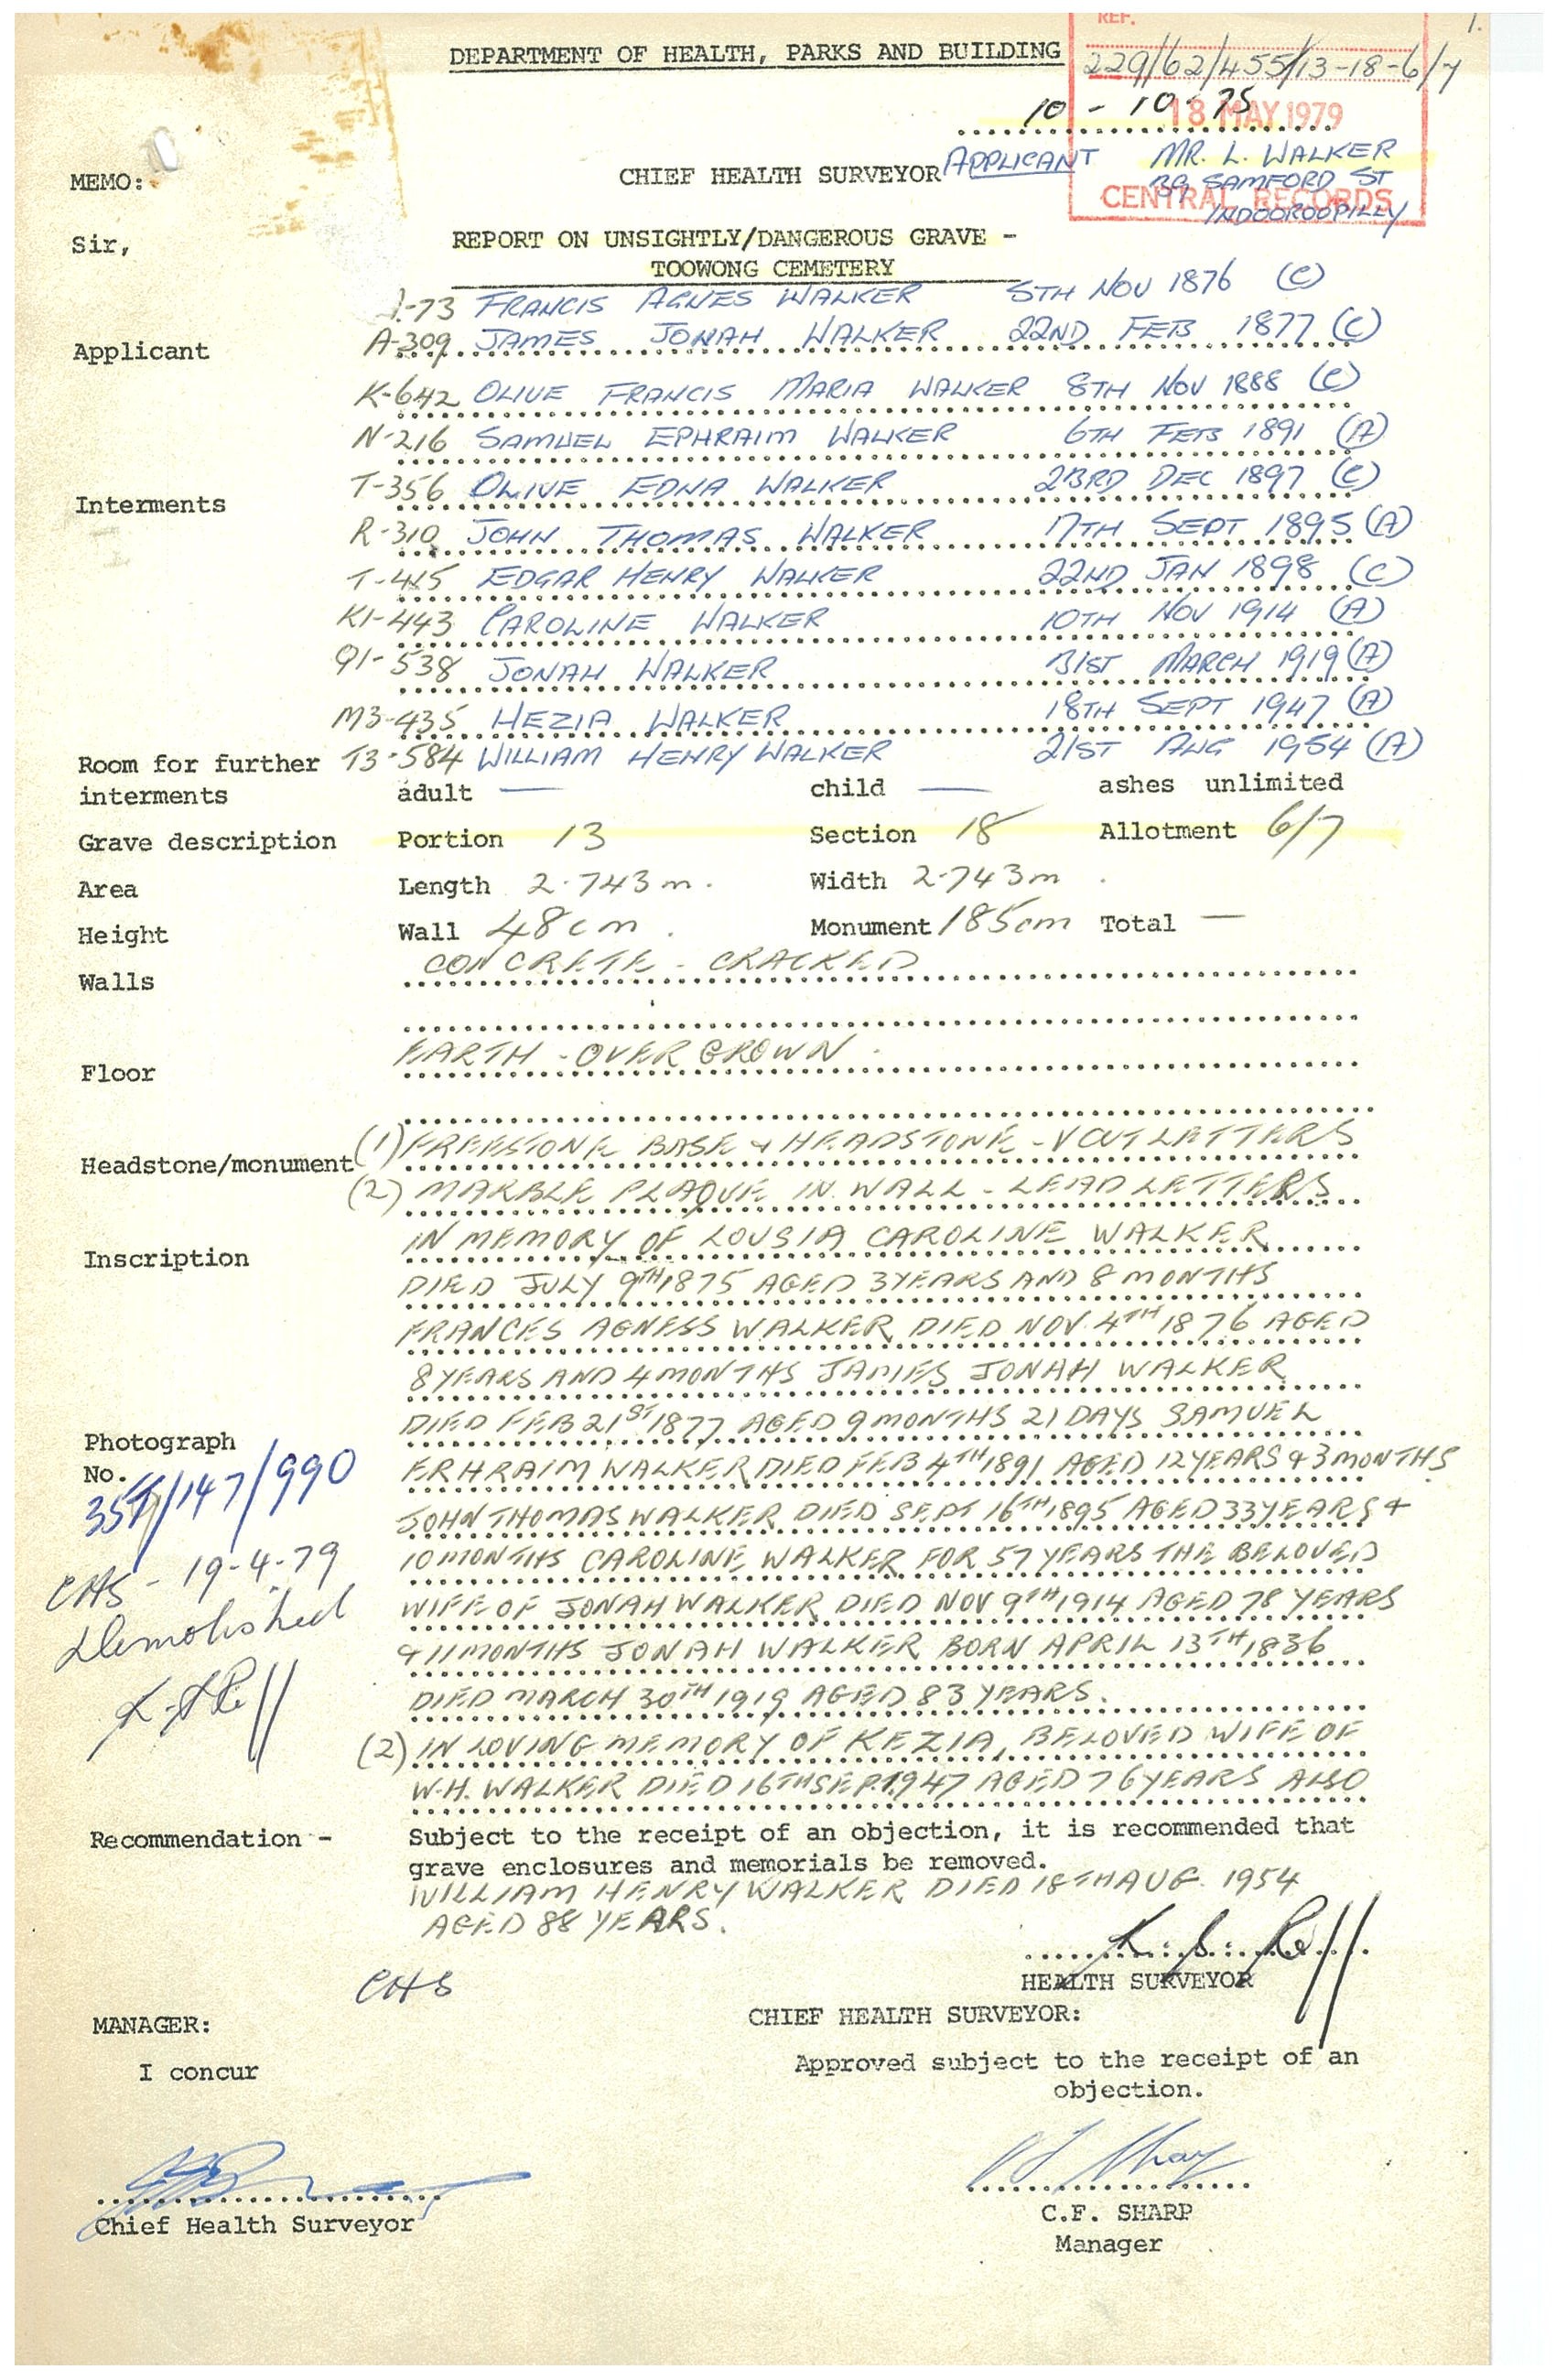 REF.
1.
DEPARTMENT OF HEALTH, PARKS AND BUILDING
229/62/455/13-18-6/7
10 - 10 - 75
18 MAY 1979
CHIEF HEALTH SURVEYOR APPLICANT MR. L. WALKER
MEMO:
39 SAMFORD ST
CENTRAL RECORDS
INDOOROOPILLY
Sir,
REPORT ON UNSIGHTLY/DANGEROUS GRAVE -
TOOWONG CEMETERY
-73 FRANCIS AGNES WALKER 5TH NOV 1876 (C)
Applicant A-309 JAMES JONAH WALKER 22ND FEB 1877 (C)
K-642 OLIVE FRANCIS MARIA WALKER 8TH NOV 1888 (C)
N-216 SAMUEL EPHRAIM WALKER 6TH FEB 1891 (A)
Interments T-356 OLIVE EDNA WALKER 23RD DEC 1897 (C)
R-310 JOHN THOMAS WALKER 17TH SEPT 1895 (A)
T-415 EDGAR HENRY WALKER 22ND JAN 1898 (C)
K1-443 CAROLINE WALKER 10TH NOV 1914 (A)
Q1-538 JONAH WALKER 31ST MARCH 1919 (A)
M3-435 HEZIA WALKER 18TH SEPT 1947 (A)
Room for further T3-584 WILLIAM HENRY WALKER 21ST AUG 1954 (A)
interments adult — child — ashes unlimited
Grave description Portion 13 Section 18 Allotment 6/7
Area Length 2.743m. Width 2.743m.
Height Wall 48cm. Monument 185cm Total —
Walls CONCRETE - CRACKED
Floor EARTH - OVERGROWN.
Headstone/monument (1) FREESTONE BASE & HEADSTONE - V CUT LETTERS
(2) MARBLE PLAQUE IN WALL - LEAD LETTERS
Inscription IN MEMORY OF LOUSIA CAROLINE WALKER
DIED JULY 9TH 1875 AGED 3 YEARS AND 8 MONTHS
FRANCES AGNESS WALKER DIED NOV. 4TH 1876 AGED
8 YEARS AND 4 MONTHS JAMES JONAH WALKER
DIED FEB 21ST 1877 AGED 9 MONTHS 21 DAYS SAMUEL
Photograph
No. ERHRAIM WALKER DIED FEB 4TH 1891 AGED 12 YEARS & 3 MONTHS
/147/990
JOHN THOMAS WALKER DIED SEPT 16TH 1895 AGED 33 YEARS &
CHS - 19-4-79
10 MONTHS CAROLINE WALKER FOR 57 YEARS THE BELOVED
Demolished
WIFE OF JONAH WALKER DIED NOV 9TH 1914 AGED 78 YEARS
& 11 MONTHS JONAH WALKER BORN APRIL 13TH 1836
DIED MARCH 30TH 1919 AGED 83 YEARS.
(2) IN LOVING MEMORY OF KEZIA, BELOVED WIFE OF
W.H. WALKER DIED 16TH SEP. 1947 AGED 76 YEARS ALSO
Recommendation - Subject to the receipt of an objection, it is recommended that
grave enclosures and memorials be removed.
WILLIAM HENRY WALKER DIED 18TH AUG. 1954
AGED 88 YEARS.
HEALTH SURVEYOR
CHS
MANAGER:
CHIEF HEALTH SURVEYOR:
I concur
Approved subject to the receipt of an
objection.
Chief Health Surveyor
C.F. SHARP
Manager